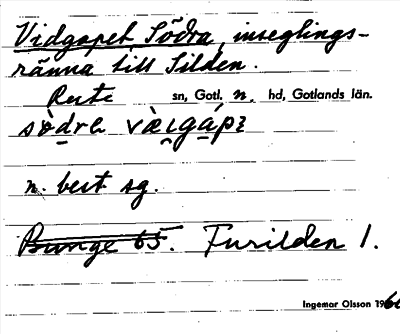 Vidgapet Södra, inseglings-
ränna till Silden.
Rute sn, Gotl. n. hd, Gotlands län.
sȯ̀dra
n. best sg.
Bunge 65. Furilden 1.
Ingemar Olsson 1960